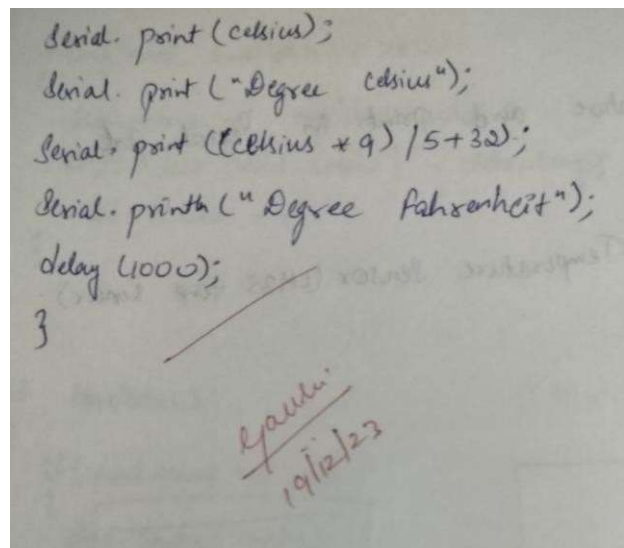 Serial. print (celsius);
Serial. print ("Degree celsius");
Serial. print ((celsius * 9) /5+32);
Serial. println (" Degree fahrenheit");
delay (1000);
}
19/12/23